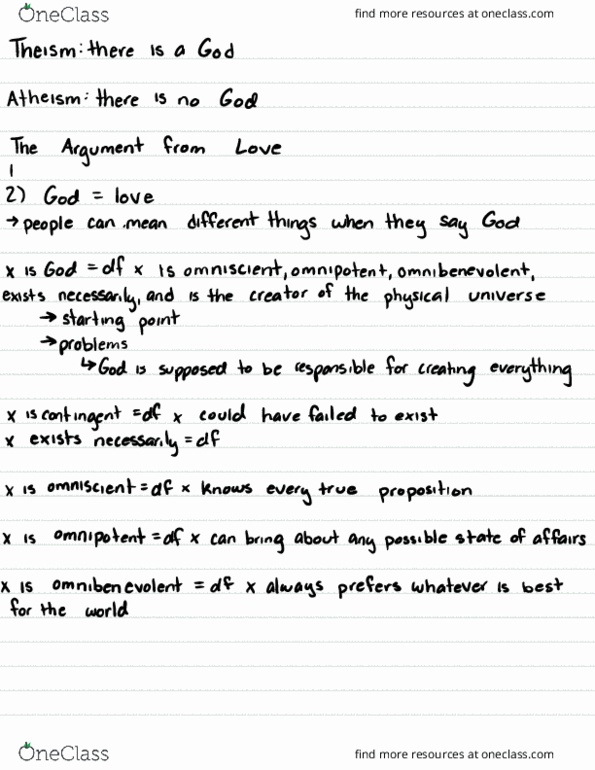 OneClass
find more resources at oneclass.com
Theism: there is a God
Atheism: there is no God
The Argument from Love
1
2) God = love
→ people can mean different things when they say God
x is God =df x is omniscient, omnipotent, omnibenevolent,
exists necessarily, and is the creator of the physical universe
→ starting point
→ problems
↳ God is supposed to be responsible for creating everything
x is contingent =df x could have failed to exist
x exists necessarily =df
x is omniscient =df x knows every true proposition
x is omnipotent =df x can bring about any possible state of affairs
x is omnibenevolent =df x always prefers whatever is best
for the world
OneClass
find more resources at oneclass.com